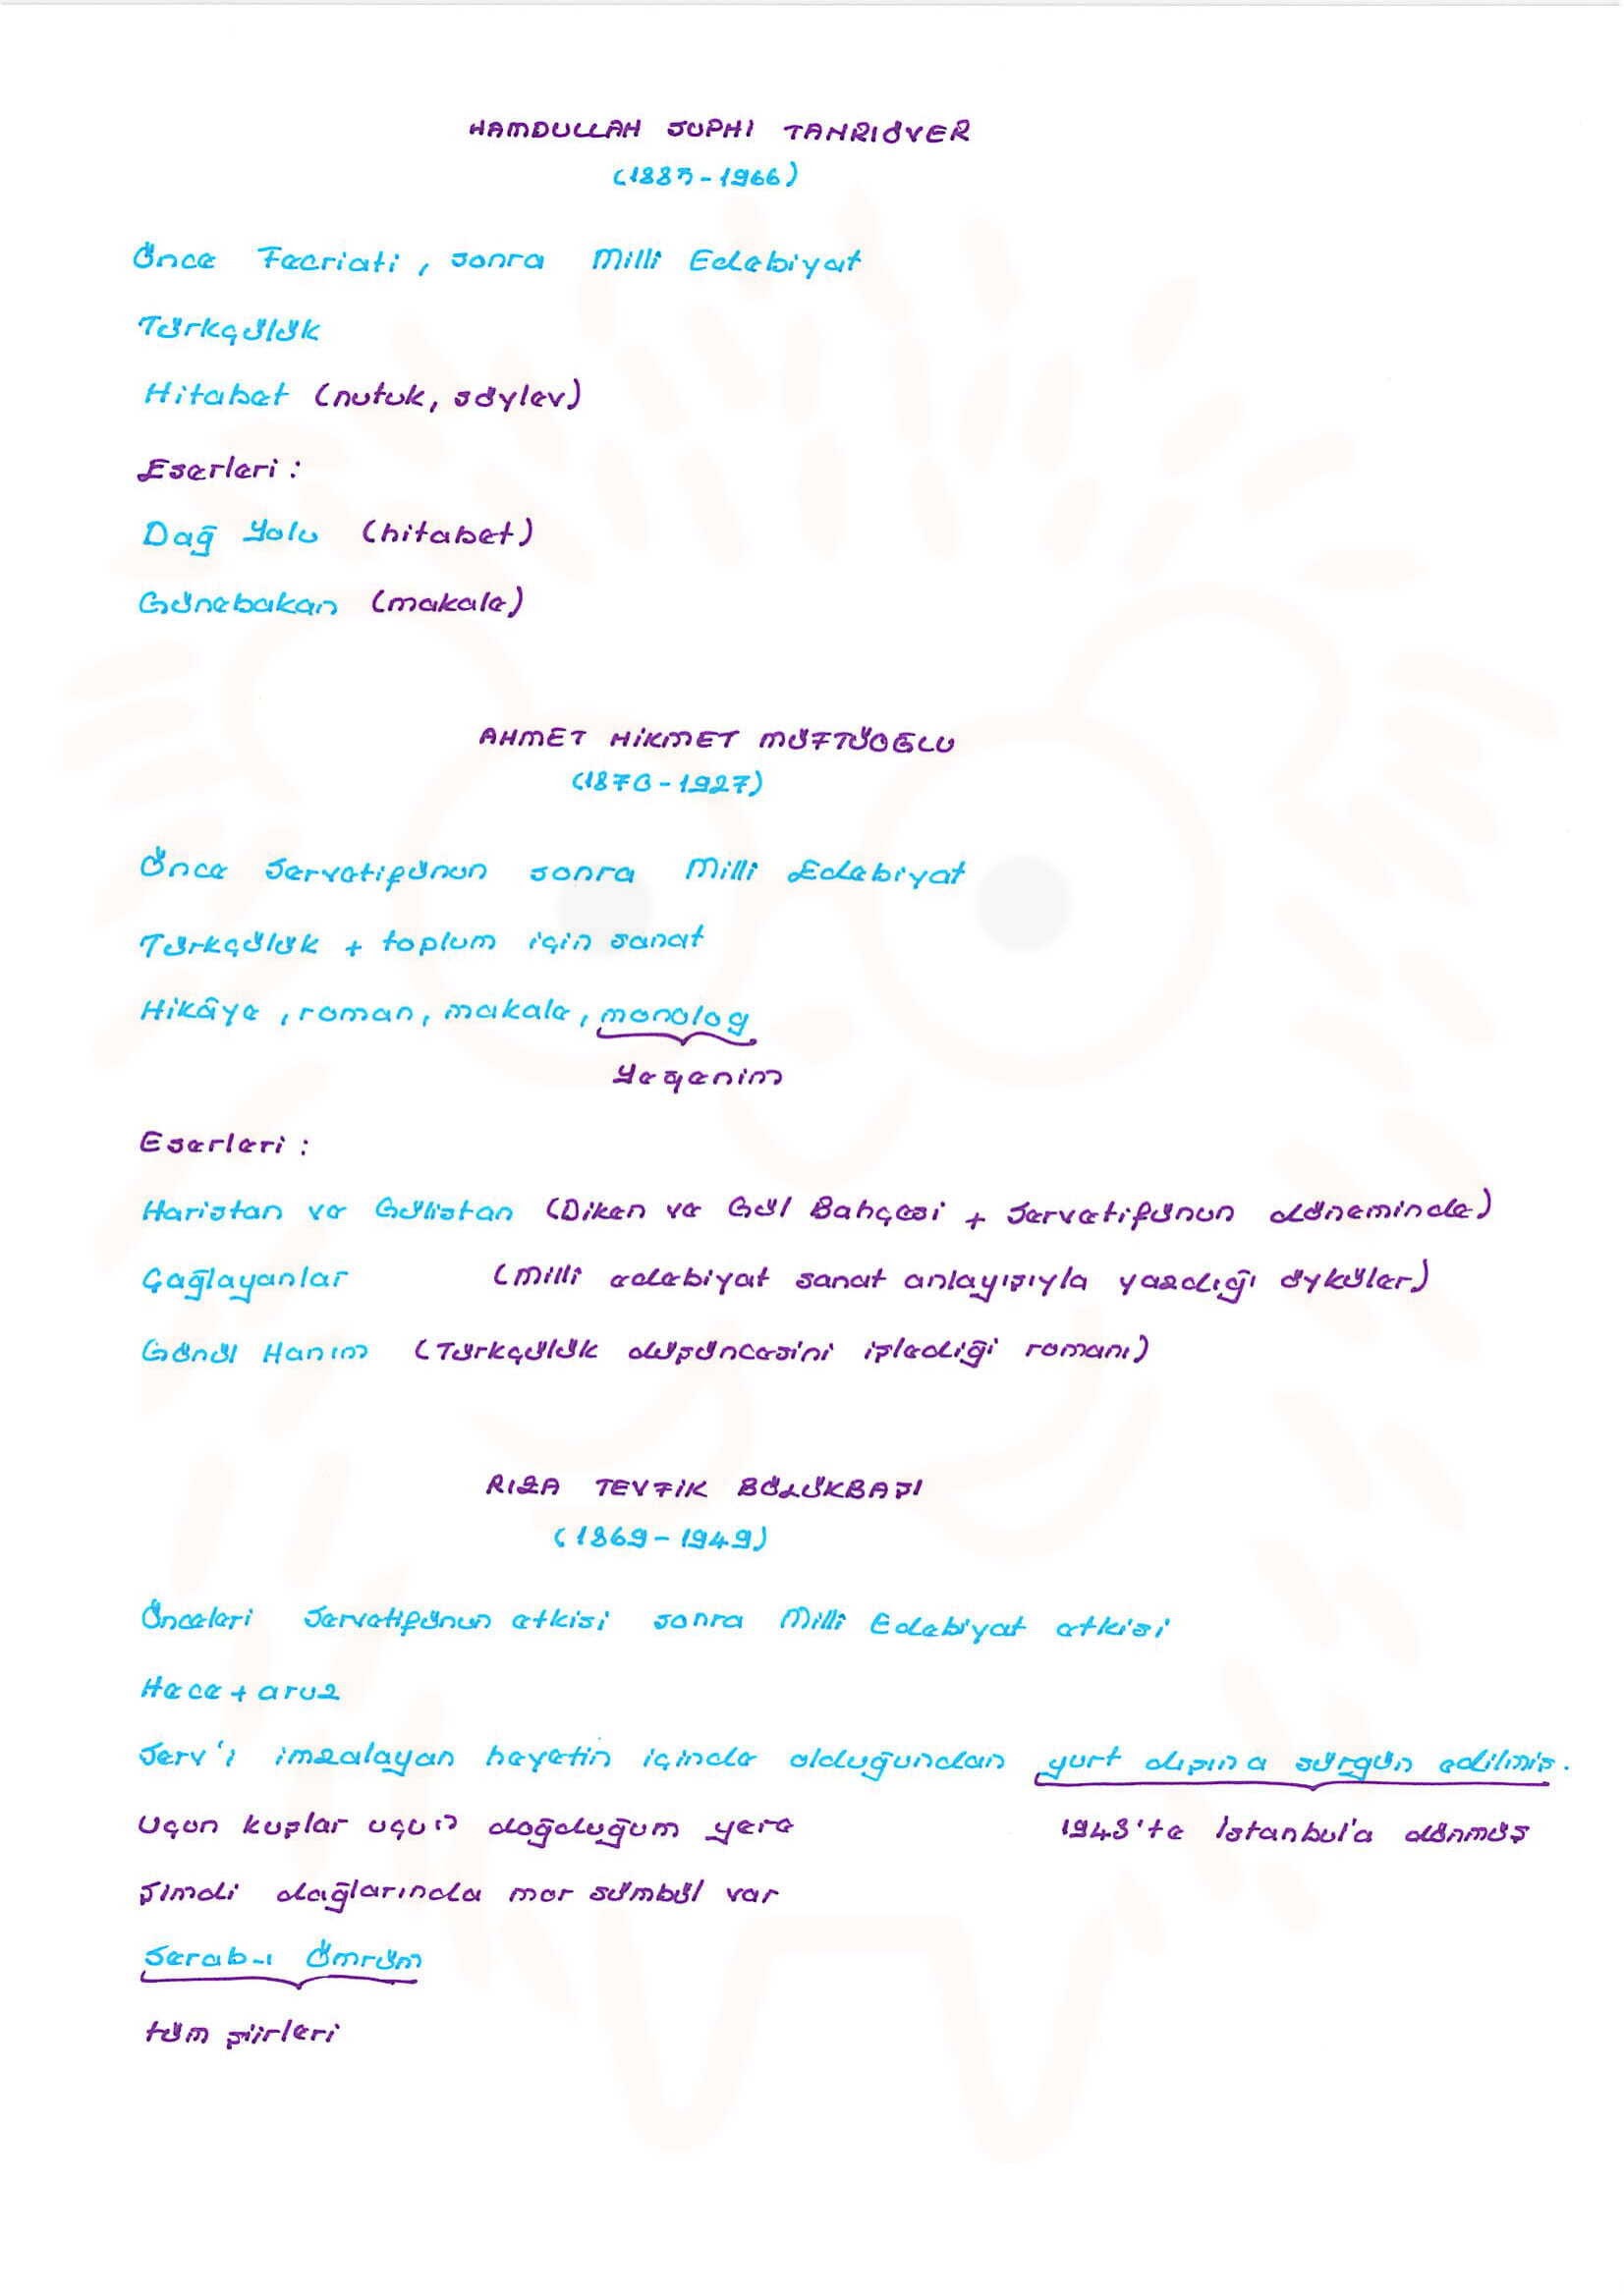 HAMDULLAH SUPHİ TANRIÖVER
(1885-1966)
Önce Fecriati, sonra Milli Edebiyat
Türkçülük
Hitabet (nutuk, söylev)
Eserleri:
Dağ Yolu (hitabet)
Günebakan (makale)
AHMET HİKMET MÜFTÜOĞLU
(1870-1927)
Önce Servetifünun sonra Milli Edebiyat
Türkçülük + toplum için sanat
Hikâye, roman, makale, monolog
Yeğenim
Eserleri:
Haristan ve Gülistan (Diken ve Gül Bahçesi + Servetifünun döneminde)
Çağlayanlar (Milli edebiyat sanat anlayışıyla yazdığı öyküler)
Gönül Hanım (Türkçülük düşüncesini işlediği romanı)
RIZA TEVFİK BÖLÜKBAŞI
(1869-1949)
Önceleri Servetifünun etkisi sonra Milli Edebiyat etkisi
Hece + aruz
Serv'i imzalayan heyetin içinde olduğundan yurt dışına sürgün edilmiş.
Uçun kuşlar uçun doğduğum yere 1943'te İstanbul'a dönmüş
Şimdi dağlarında mor sümbül var
Serab-ı Ömrüm
tüm şiirleri